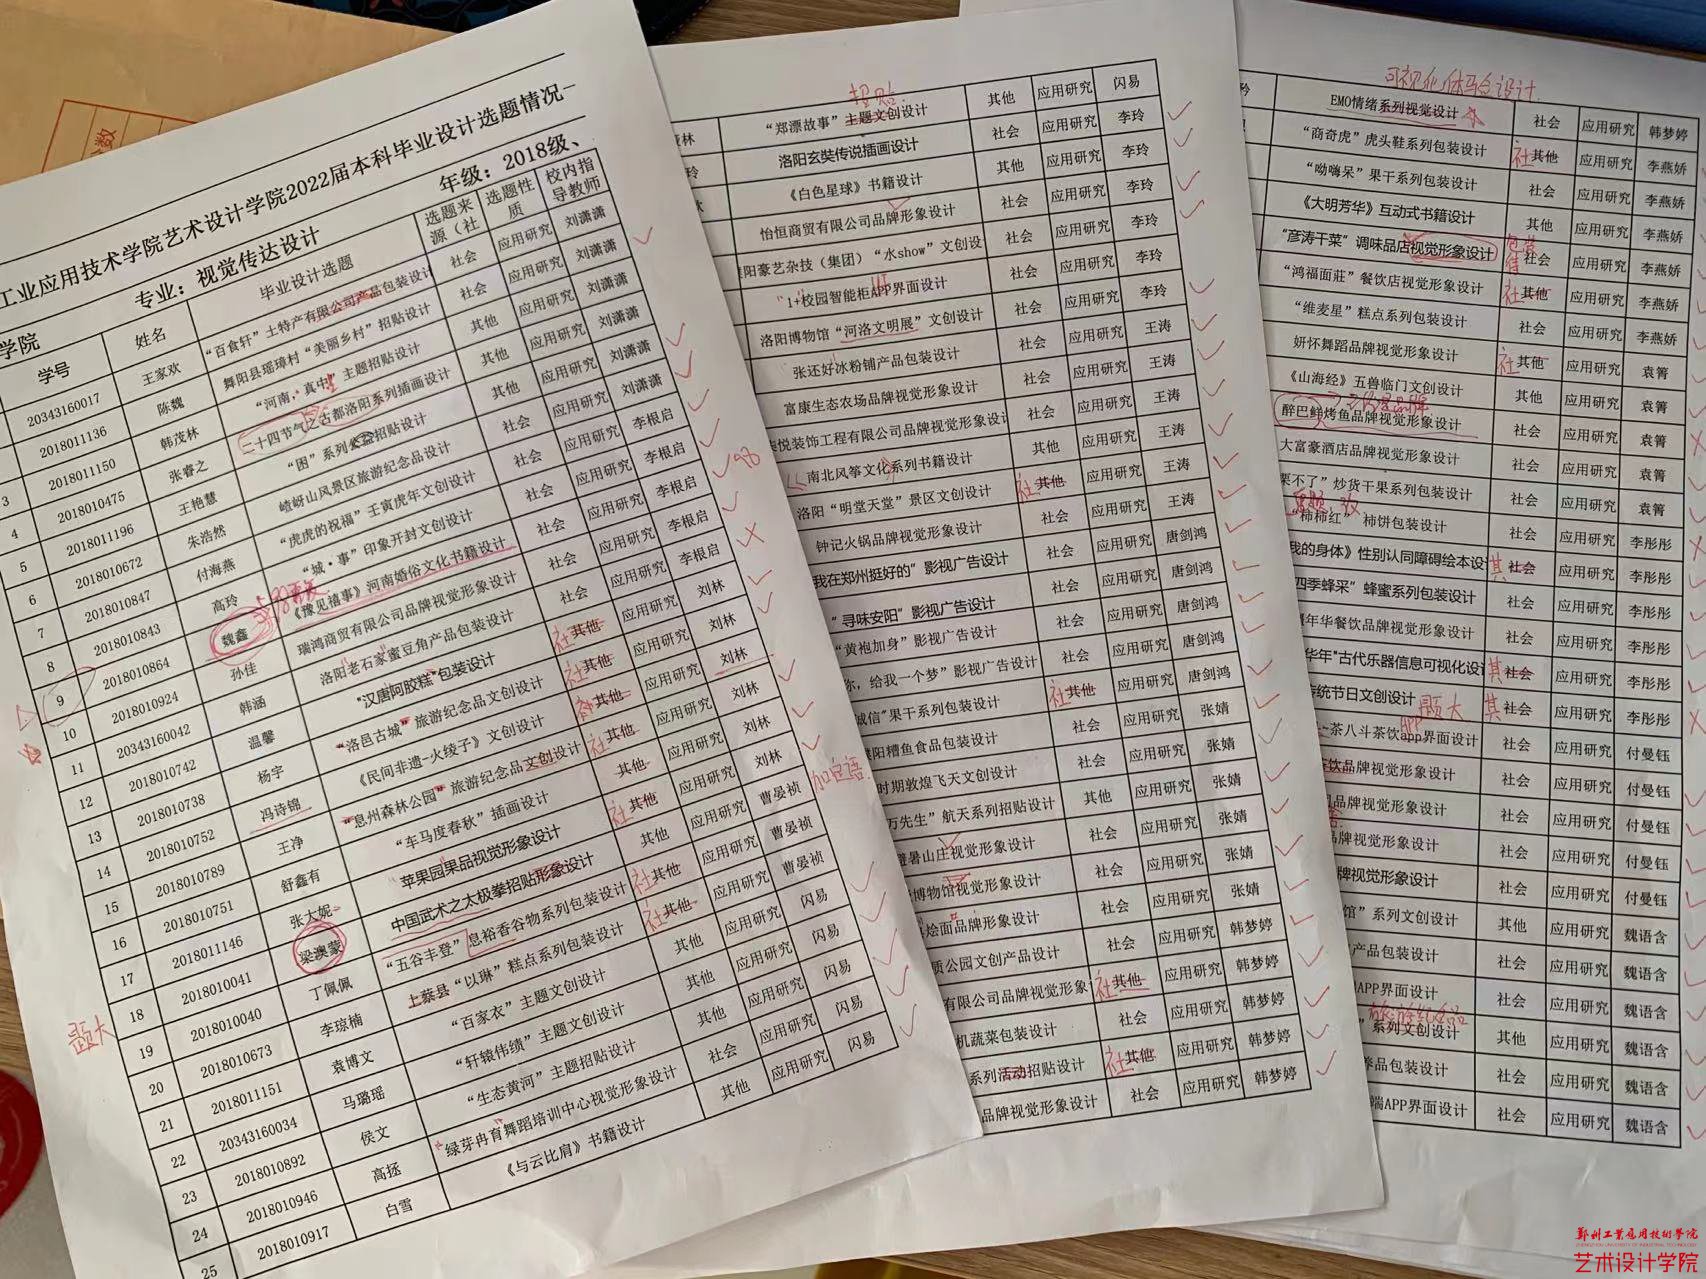 工业应用技术学院艺术设计学院2022届本科毕业设计选题情况一
学院 专业：视觉传达设计 年级：2018级、
学号 姓名 毕业设计选题 选题来源（社 选题性质 校内指导教师
20343160017 王家欢 “百食轩”土特产有限公司产品包装设计 社会 应用研究 刘潇潇
2018011136 陈魏 舞阳县瑶璋村“美丽乡村”招贴设计 社会 应用研究 刘潇潇
3 2018011150 韩茂林 “河南，真中”主题招贴设计 其他 应用研究 刘潇潇
4 2018010475 张睿之 二十四节气之古都洛阳系列插画设计 其他 应用研究 刘潇潇
5 2018011196 王艳慧 “困”系列公益招贴设计 其他 应用研究 刘潇潇
6 2018010672 朱浩然 嵖岈山风景区旅游纪念品设计 社会 应用研究 李根启
7 2018010847 付海燕 “虎虎的祝福”壬寅虎年文创设计 社会 应用研究 李根启
8 2018010843 高玲 “城·事”印象开封文创设计 社会 应用研究 李根启
9 2018010864 魏鑫 《豫见禧事》河南婚俗文化书籍设计 社会 应用研究 李根启
10 2018010924 孙佳 瑞鸿商贸有限公司品牌视觉形象设计 社会 应用研究 李根启
11 20343160042 韩涵 洛阳老石家蜜豆角产品包装设计 社会 应用研究 刘林
12 2018010742 温馨 “汉唐阿胶糕”包装设计 社 其他 应用研究 刘林
13 2018010738 杨宇 “洛邑古城”旅游纪念品文创设计 社 其他 应用研究 刘林
14 2018010752 冯诗锦 《民间非遗-火绫子》文创设计 其他 应用研究 刘林
15 2018010789 王净 “息州森林公园”旅游纪念品文创设计 社 其他 应用研究 刘林
16 2018010751 舒鑫有 “车马度春秋”插画设计 其他 应用研究 刘林
17 2018011146 张大妮 苹果园果品视觉形象设计 社 其他 应用研究 曹晏祯 加宣语
18 2018010041 梁澳蒙 中国武术之太极拳招贴形象设计 其他 应用研究 曹晏祯
题大 19 2018010040 丁佩佩 “五谷丰登”息裕香谷物系列包装设计 社 其他 应用研究 曹晏祯
20 2018010673 李琼楠 上蔡县“以琳”糕点系列包装设计 社 其他 应用研究 闪易
21 2018011151 袁博文 “百家衣”主题文创设计 其他 应用研究 闪易
22 20343160034 马璐瑶 “轩辕伟绩”主题文创设计 其他 应用研究 闪易
23 2018010892 侯文 “生态黄河”主题招贴设计 其他 应用研究 闪易
24 2018010946 高拯 “绿芽冉育舞蹈培训中心视觉形象设计 社会 应用研究 闪易
25 2018010917 白雪 《与云比肩》书籍设计 其他 应用研究 闪易
招贴
林 “郑漂故事”主题文创设计 其他 应用研究 闪易
玲 洛阳玄奘传说插画设计 社会 应用研究 李玲
《白色星球》书籍设计 其他 应用研究 李玲
怡恒商贸有限公司品牌形象设计 社会 应用研究 李玲
阳豪艺杂技（集团）“水show”文创设 社会 应用研究 李玲
1+校园智能柜APP界面设计 社会 应用研究 李玲
洛阳博物馆“河洛文明展”文创设计 社会 应用研究 李玲
张还好冰粉铺产品包装设计 社会 应用研究 王涛
富康生态农场品牌视觉形象设计 社会 应用研究 王涛
悦装饰工程有限公司品牌视觉形象设计 社会 应用研究 王涛
南北风筝文化系列书籍设计 其他 应用研究 王涛
洛阳“明堂天堂”景区文创设计 社 其他 应用研究 王涛
钟记火锅品牌视觉形象设计 社会 应用研究 王涛
我在郑州挺好的”影视广告设计 社会 应用研究 唐剑鸿
“寻味安阳”影视广告设计 社会 应用研究 唐剑鸿
“黄袍加身”影视广告设计 社会 应用研究 唐剑鸿
你，给我一个梦”影视广告设计 社会 应用研究 唐剑鸿
诚信”果干系列包装设计 社 其他 应用研究 唐剑鸿
阳糟鱼食品包装设计 社会 应用研究 张婧
时期敦煌飞天文创设计 社会 应用研究 张婧
万先生”航天系列招贴设计 其他 应用研究 张婧
避暑山庄视觉形象设计 社会 应用研究 张婧
博物馆视觉形象设计 社会 应用研究 张婧
烩面品牌形象设计 社会 应用研究 张婧
质公园文创产品设计 社会 应用研究 韩梦婷
有限公司品牌视觉形象设计 社 其他 应用研究 韩梦婷
机蔬菜包装设计 社会 应用研究 韩梦婷
系列活动招贴设计 社 其他 应用研究 韩梦婷
品牌视觉形象设计 社会 应用研究 韩梦婷
可视化 设计
EMO情绪系列视觉设计 社会 应用研究 韩梦婷
“商奇虎”虎头鞋系列包装设计 社 其他 应用研究 李燕娇
“呦嗨呆”果干系列包装设计 社会 应用研究 李燕娇
《大明芳华》互动式书籍设计 其他 应用研究 李燕娇
“彦涛干菜”调味品店视觉形象设计 社会 应用研究 李燕娇
“鸿福面莊”餐饮店视觉形象设计 社 其他 应用研究 李燕娇
“维麦星”糕点系列包装设计 社会 应用研究 李燕娇
妍怀舞蹈品牌视觉形象设计 社 其他 应用研究 袁箐
《山海经》五兽临门文创设计 其他 应用研究 袁箐
醉巴鲜烤鱼品牌视觉形象设计 社会 应用研究 袁箐
大富豪酒店品牌视觉形象设计 社会 应用研究 袁箐
栗不了”炒货干果系列包装设计 社会 应用研究 袁箐
“柿柿红”柿饼包装设计 社会 应用研究 李彤彤
我的身体》性别认同障碍绘本设计 其 社会 应用研究 李彤彤
四季蜂采”蜂蜜系列包装设计 社会 应用研究 李彤彤
年华餐饮品牌视觉形象设计 社会 应用研究 李彤彤
华年”古代乐器信息可视化设计 其 社会 应用研究 李彤彤
传统节日文创设计 题大 其 社会 应用研究 李彤彤
茶八斗茶饮app界面设计 APP 社会 应用研究 付曼钰
饮品牌视觉形象设计 社会 应用研究 付曼钰
品牌视觉形象设计 社会 应用研究 付曼钰
品牌视觉形象设计 社会 应用研究 付曼钰
牌视觉形象设计 社会 应用研究 付曼钰
馆”系列文创设计 其他 应用研究 魏语含
产品包装设计 社会 应用研究 魏语含
APP界面设计 社会 应用研究 魏语含
旅游纪念品
”系列文创设计 其他 应用研究 魏语含
品包装设计 社会 应用研究 魏语含
端APP界面设计 社会 应用研究 魏语含
郑州工业应用技术学院
艺术设计学院